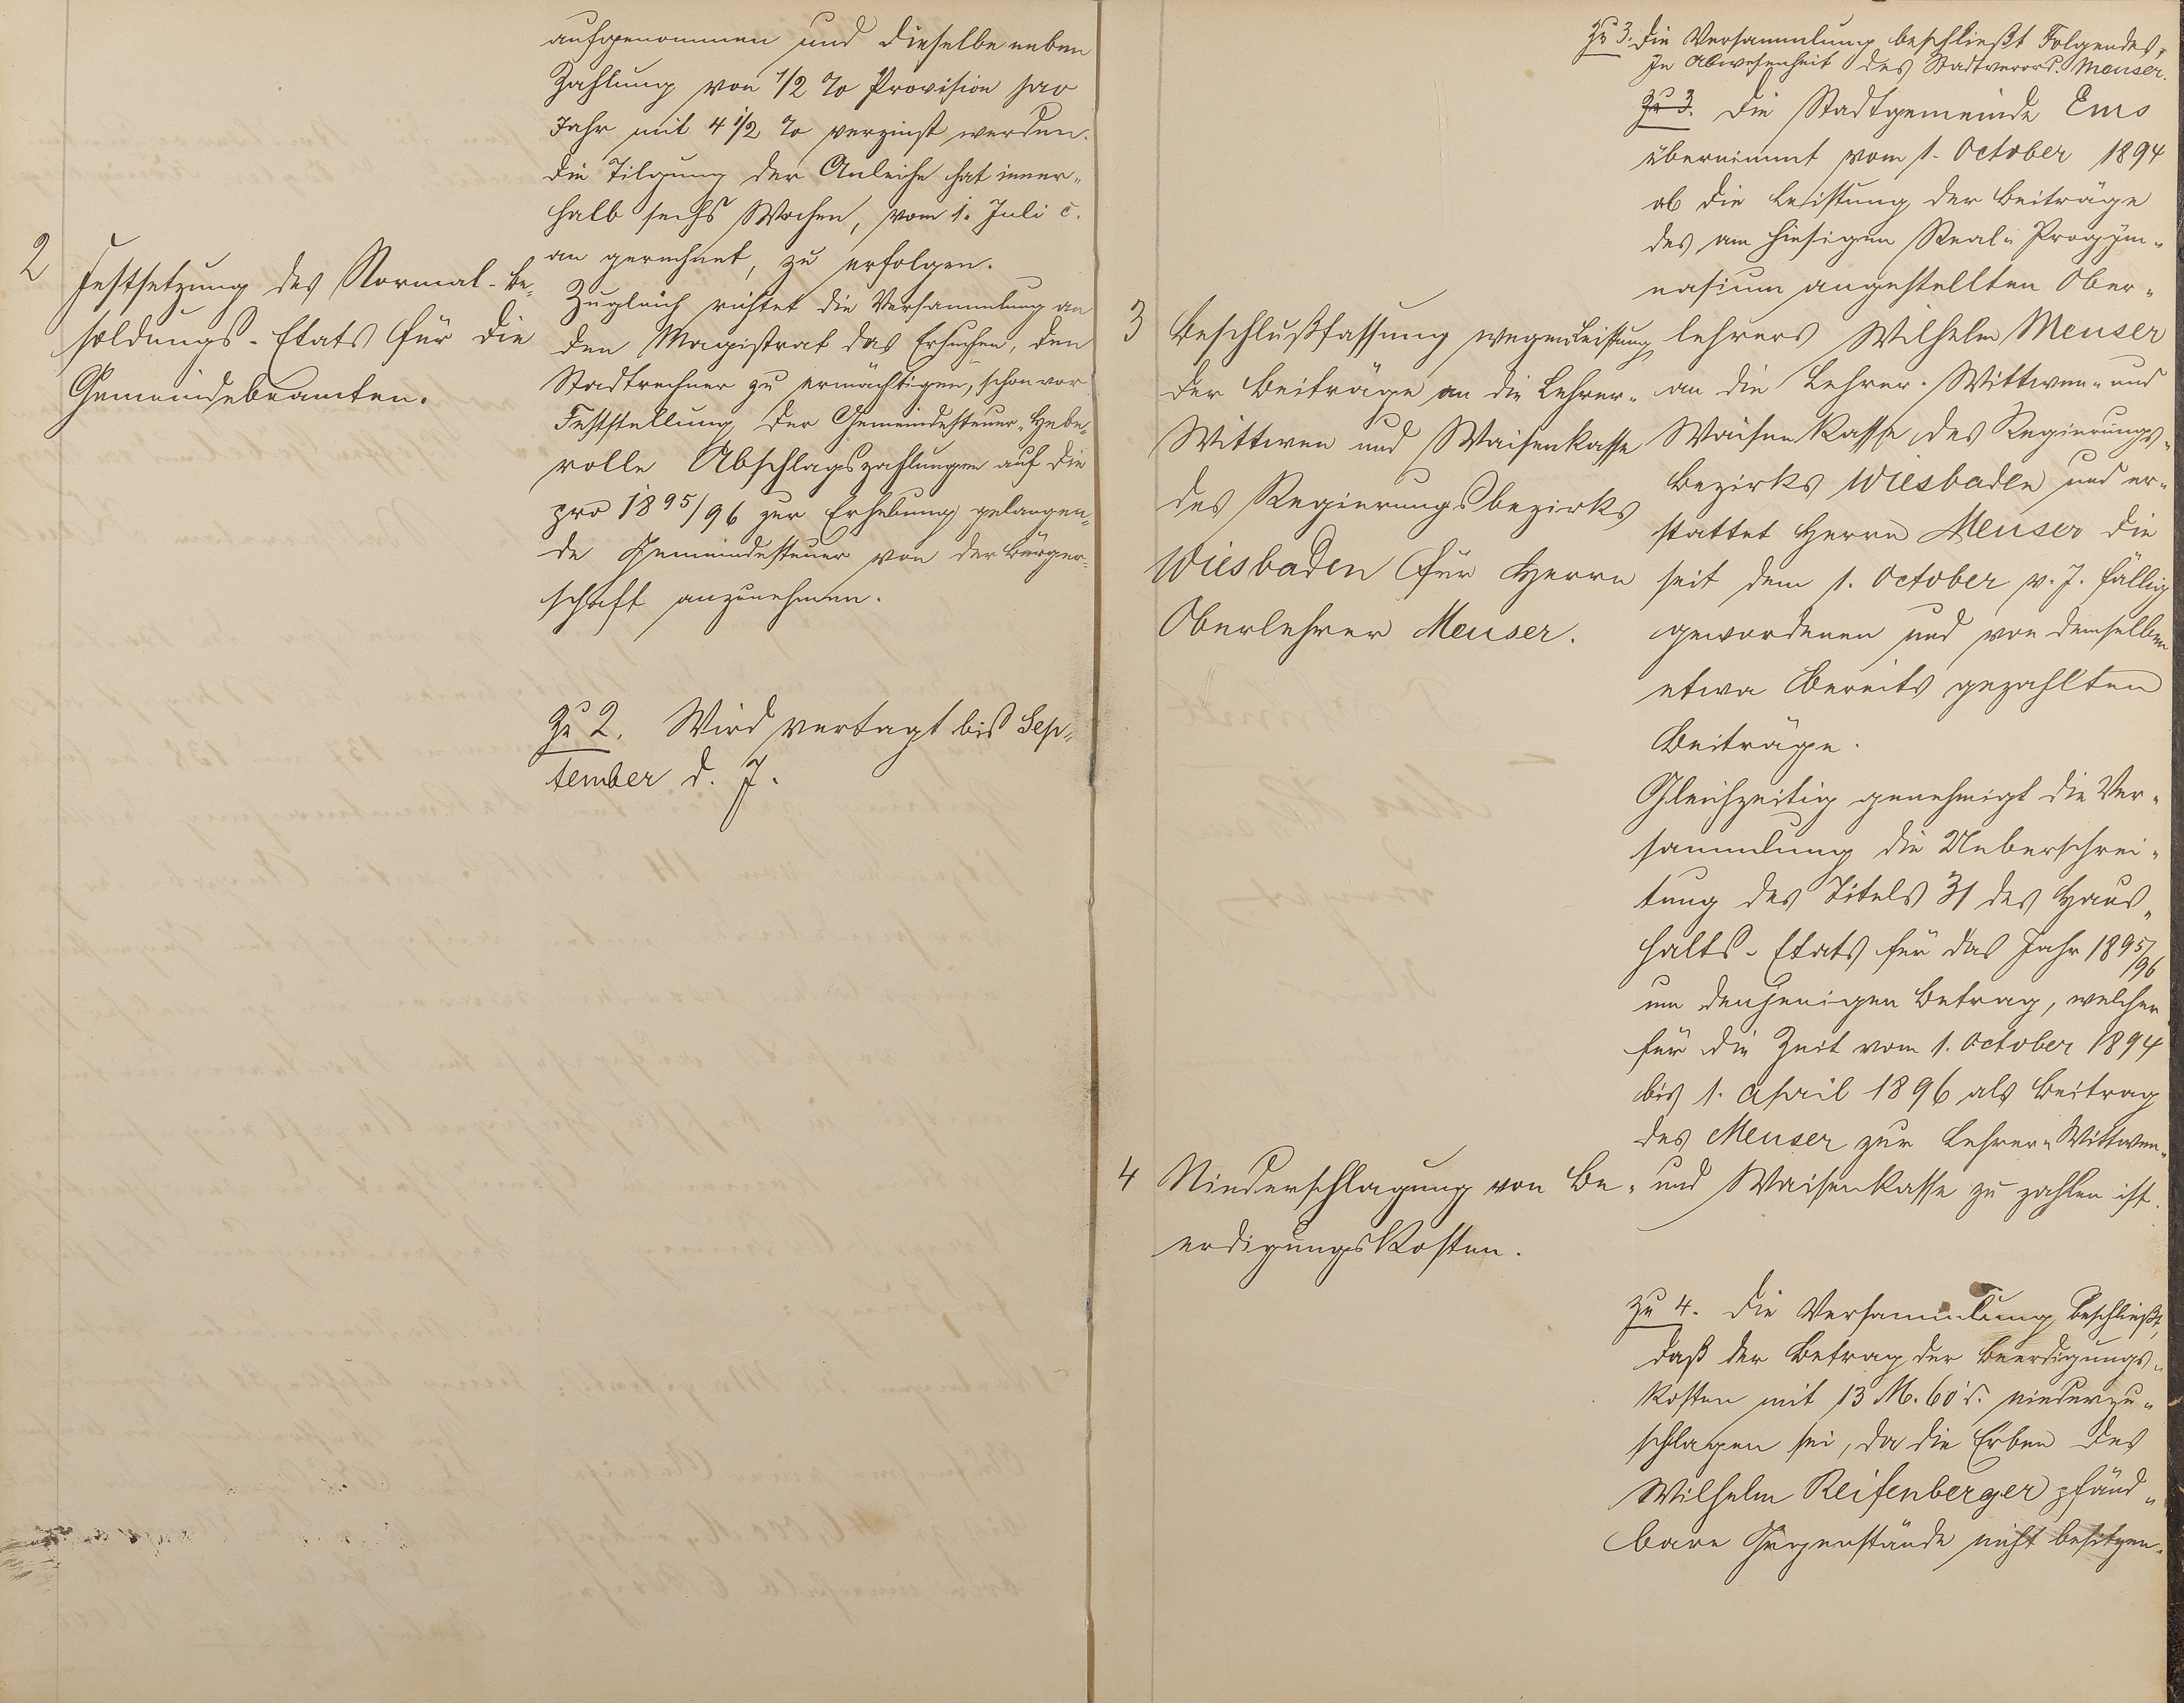 aufgenommen und dieselbe neben
Zahlung von 1/2 % Provision pro
Jahr mit 4 1/2 % verzinst werden.
Die Tilgung der Anleihe hat inner-
halb sechs Wochen, vom 1. Juli c.
an gerechnet, zu erfolgen.
Zugleich richtet die Versammlung an
den Magistrat das Ersuchen, den
Stadtrechner zu ermächtigen, schon vor
Feststellung der Gemeindesteuer-Hebe-
rolle Abschlagszahlungen auf die
pro 1895/96 zur Erhebung gelangen-
de Gemeindesteuer von der Bürger-
schaft anzunehmen.
2
Festsetzung des Normal-Be-
soldungs-Etats für die
Gemeindebeamten.
Zu 2. Wird vertagt bis Sep-
tember d. J.
Zu 3. Die Versammlung beschließt Folgendes,
In Abwesenheit des Stadtverord. Meuser.
Zu 3. Die Stadtgemeinde Ems
übernimmt vom 1. October 1894
ab die Leistung der Beiträge
des am hiesigen Real-Progym-
nasium angestellten Ober-
lehrers Wilhelm Meuser
an die Lehrer-Wittwen- und
Waisenkasse des Regierungs-
bezirks Wiesbaden und er-
stattet Herrn Meuser die
seit dem 1. October v. J. fällig
gewordenen und von demselben
etwa bereits gezahlten
Beiträge.
Gleichzeitig genehmigt die Ver-
sammlung die Ueberschrei-
tung des Titels 31 des Haus-
halts-Etats für das Jahr 1895/96
um denjenigen Betrag, welcher
für die Zeit vom 1. October 1894
bis 1. April 1896 als Beitrag
des Meuser zur Lehrer-Wittwen-
und Waisenkasse zu zahlen ist.
3
Beschlußfassung wegen Leistung
der Beiträge an die Lehrer-
Wittwen und Waisenkasse
des Regierungsbezirks
Wiesbaden für Herrn
Oberlehrer Meuser.
4
Niederschlagung von Be-
erdigungskosten.
Zu 4. Die Versammlung beschließt,
daß der Betrag der Beerdigungs-
kosten mit 13 M. 60 d. niederzu-
schlagen sei, da die Erben des
Wilhelm Reifenberger pfänd-
bare Gegenstände nicht besitzen.